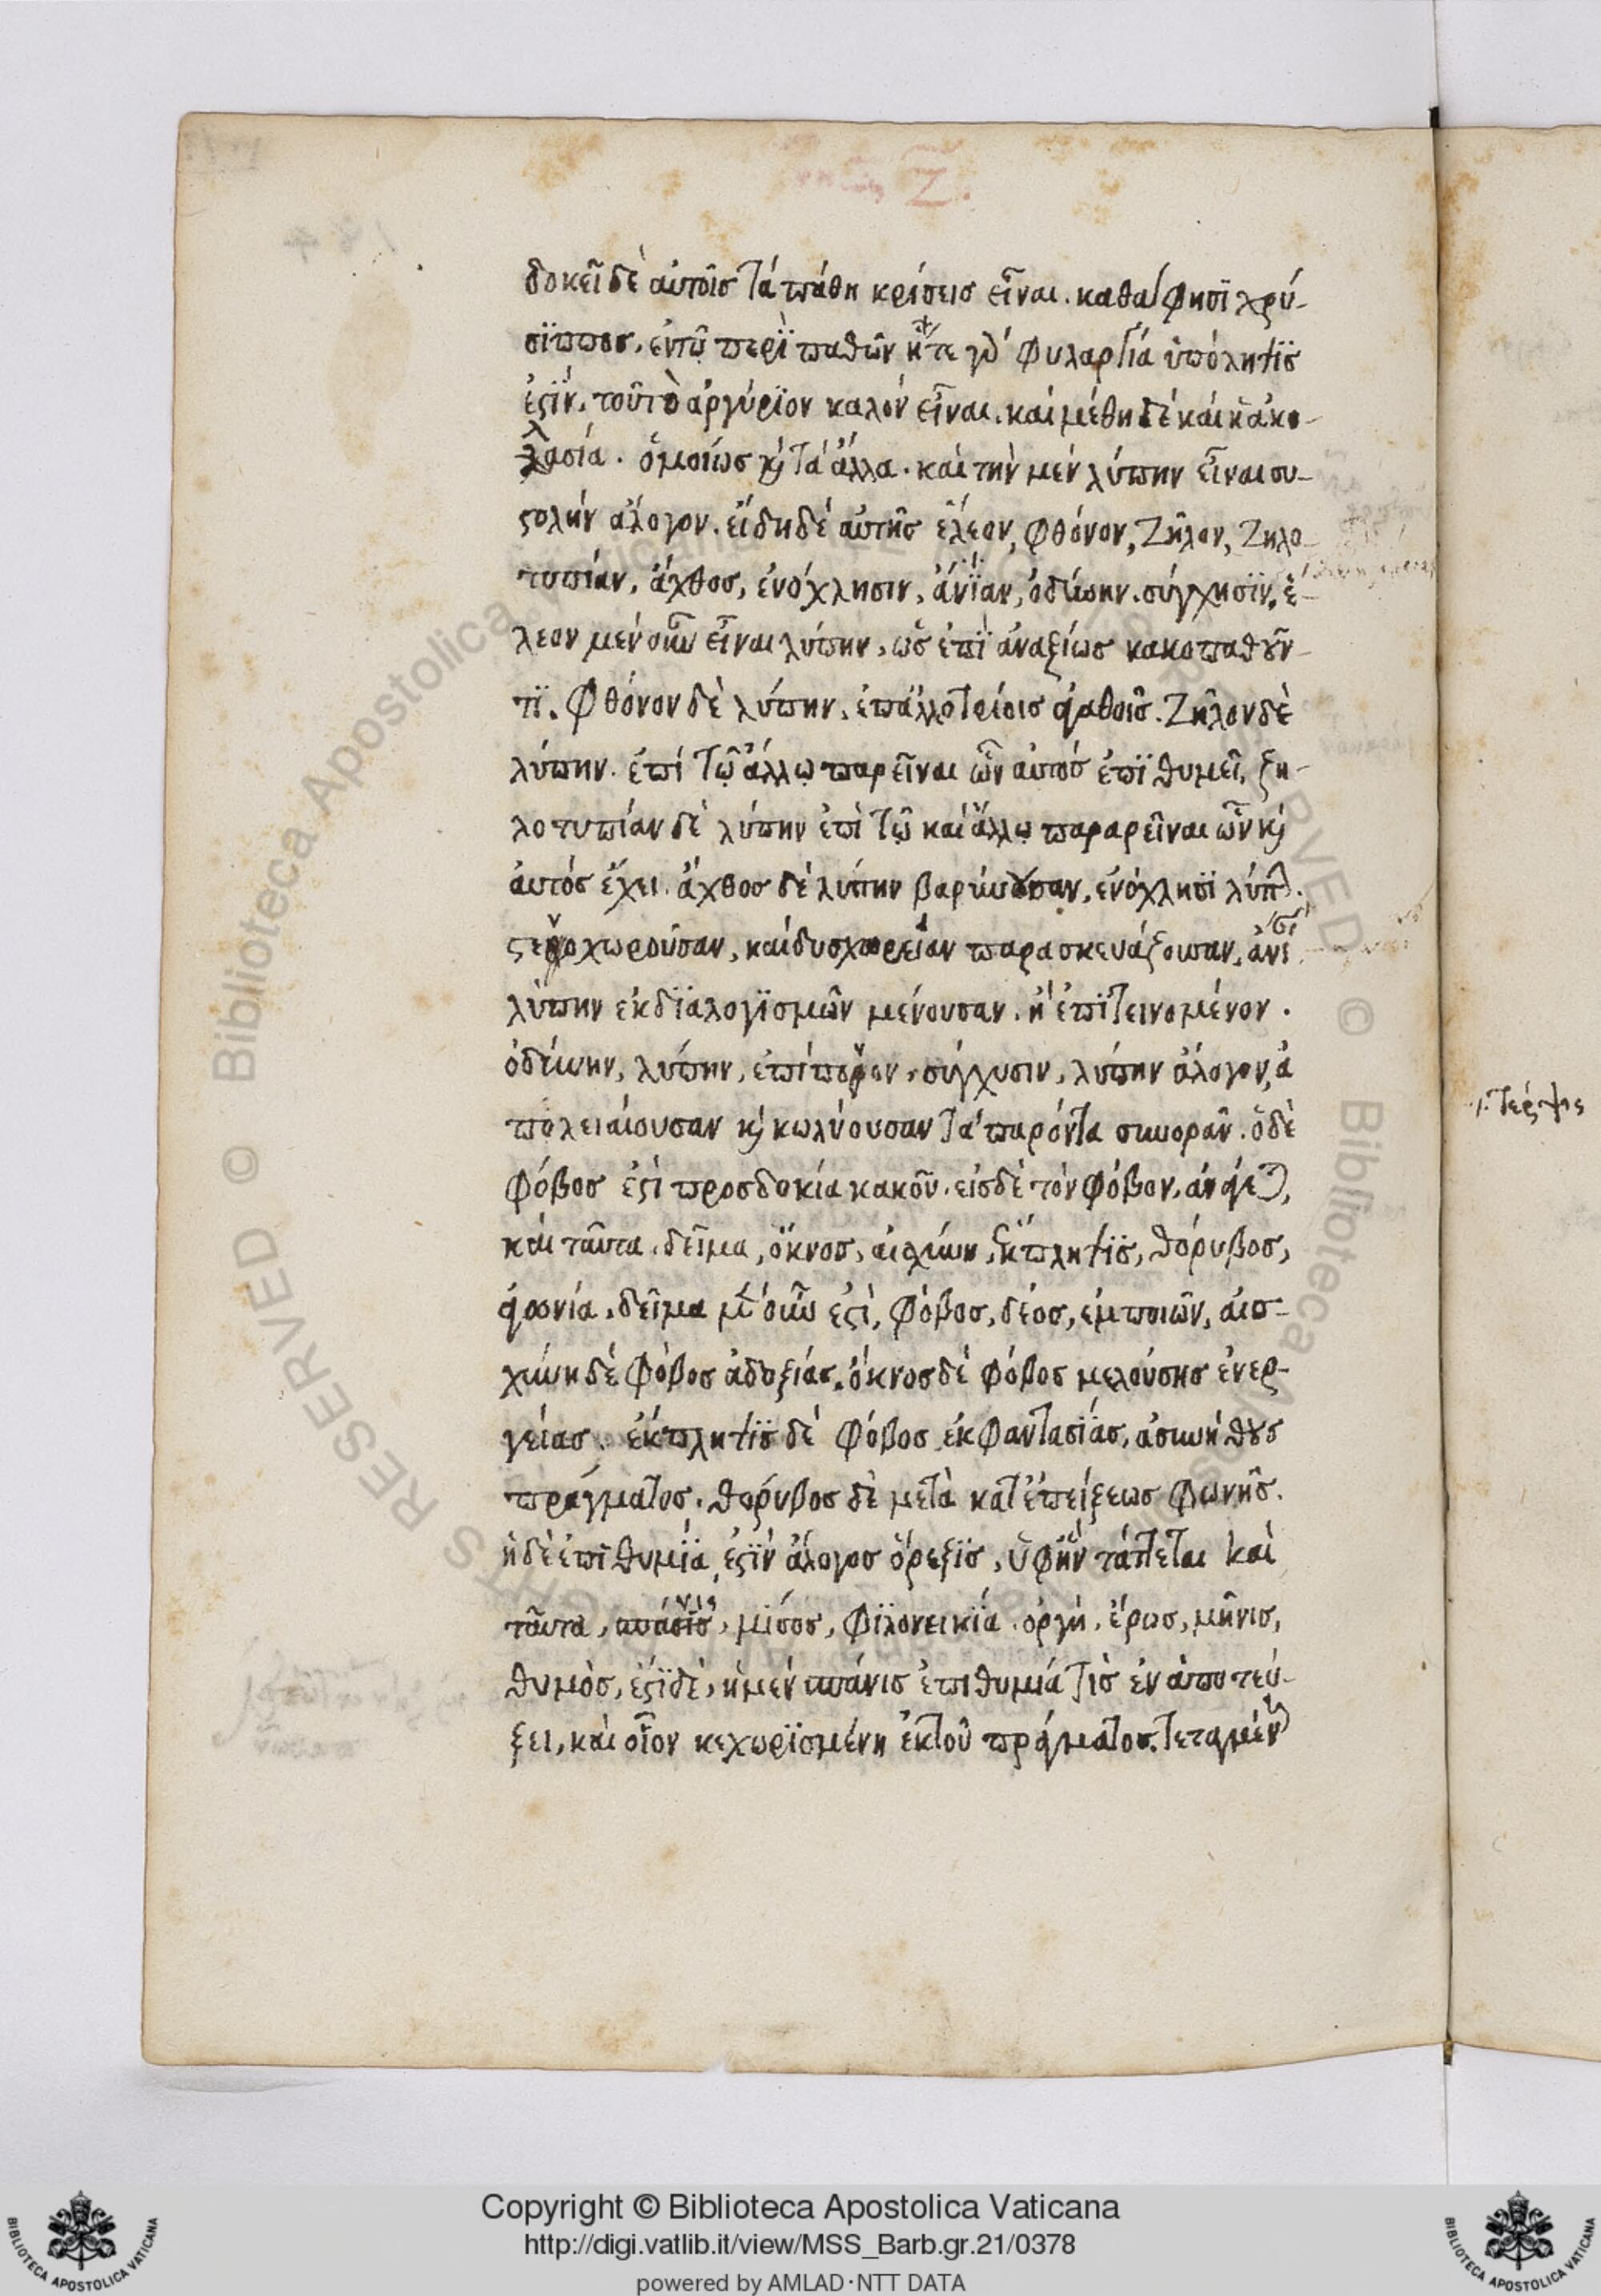 δοκεῖ δὲ αὐτοῖς τὰ πάθη κρίσεις εἶναι. καθα φησϊ χρύ-
σϊππος, ἐντῷ περὶ παθῶν ἥτε γὰρ φυλαργία ὑπόληψϊς
ἐςϊν, τοῦ τὸ ἀργύρϊον καλὸν εἶναι. καὶ μέθη δὲ καὶ ἡ ἀκο-
λασία. ὁμοίως κ τὰ ἄλλα. καὶ τὴν μὲν λύπην εἶναι συ-
ςολήν ἄλογον. εἴδη δὲ αὐτῆς ἔλεον, φθόνον, ζῆλον, ζηλο-
τυπίαν, ἄχθος, ἐνόχλησιν, ἀνΐαν, ὀδύνην. σύγχησϊν, ἔ-
λεον μὲν οὖν εἶναι λύπην, ὡς ἐπῒ ἀναξίως κακοπαθοῦν-
τϊ. φθόνον δὲ λύπην, ἐπ ἀλλοτρίοις ἀγαθοῖς. ζῆλον δὲ
λύπην. ἐπὶ τῷ ἄλλῳ παρεῖναι ὧν αὐτὸς ἐπϊθυμεῖ, ζη-
λοτυπίαν δὲ λύπην ἐπὶ τῷ καὶ ἄλλῳ παραρεῖναι ὧν κ
αὐτός ἔχει. ἄχθος δὲ λύπην βαρύνουσαν, ἐνόχλησϊ λύπην.
ςενοχωροῦσαν, καὶ δυσχωρείαν παρασκευάζουσαν, ἀνί
λύπην ἐκ δϊαλογϊσμῶν μένουσαν, ἢ ἐπϊτεινομένον.
ὀδύνην, λύπην, ἐπίπονον, σύγχυσιν, λύπην ἄλογον, ἀ
πολειαίουσαν κ κωλύουσαν τὰ παρόντα συνορᾶν. ὁ δὲ
φόβος ἐςὶ προσδοκία κακοῦ. εἰς δὲ τὸν φόβον, ἀνάγεται,
καὶ ταῦτα, δεῖμα, ὄκνος, αἰσχύνη, ἔκπληψϊς, θόρυβος,
ἀγωνία, δεῖμα μὲν οὖν ἐςὶ, φόβος, δέος, ἐμποιῶν, αἰσ-
χύνη δὲ φόβος ἀδοξίας, ὄκνος δὲ φόβος μελούσης ἐνερ-
γείας. ἔκπληψϊς δὲ φόβος ἐκ φαντασϊάς, ἀσυνήθους
πράγματος. θόρυβος δὲ μετὰ κατεπείξεως φωνῆς.
ἡ δὲ ἐπιθυμΐα ἐςϊν ἄλογος ὄρεξϊς, ὑφἣν τάττεται καὶ
ταῦτα, σπάνις, μϊσος, φϊλονεικϊα. ὀργή, ἔρως, μῆνις,
θυμὸς, ἔςϊ δὲ, ἡ μὲν σπάνις ἐπιθυμία τὶς ἐν ἀποτεύ-
ξει, καὶ οἷον κεχωρϊσμένη ἐκτοῦ πράγματος, τεταμένη
τέρψις
Copyright © Biblioteca Apostolica Vaticana
http://digi.vatlib.it/view/MSS_Barb.gr.21/0378
powered by AMLAD·NTT DATA